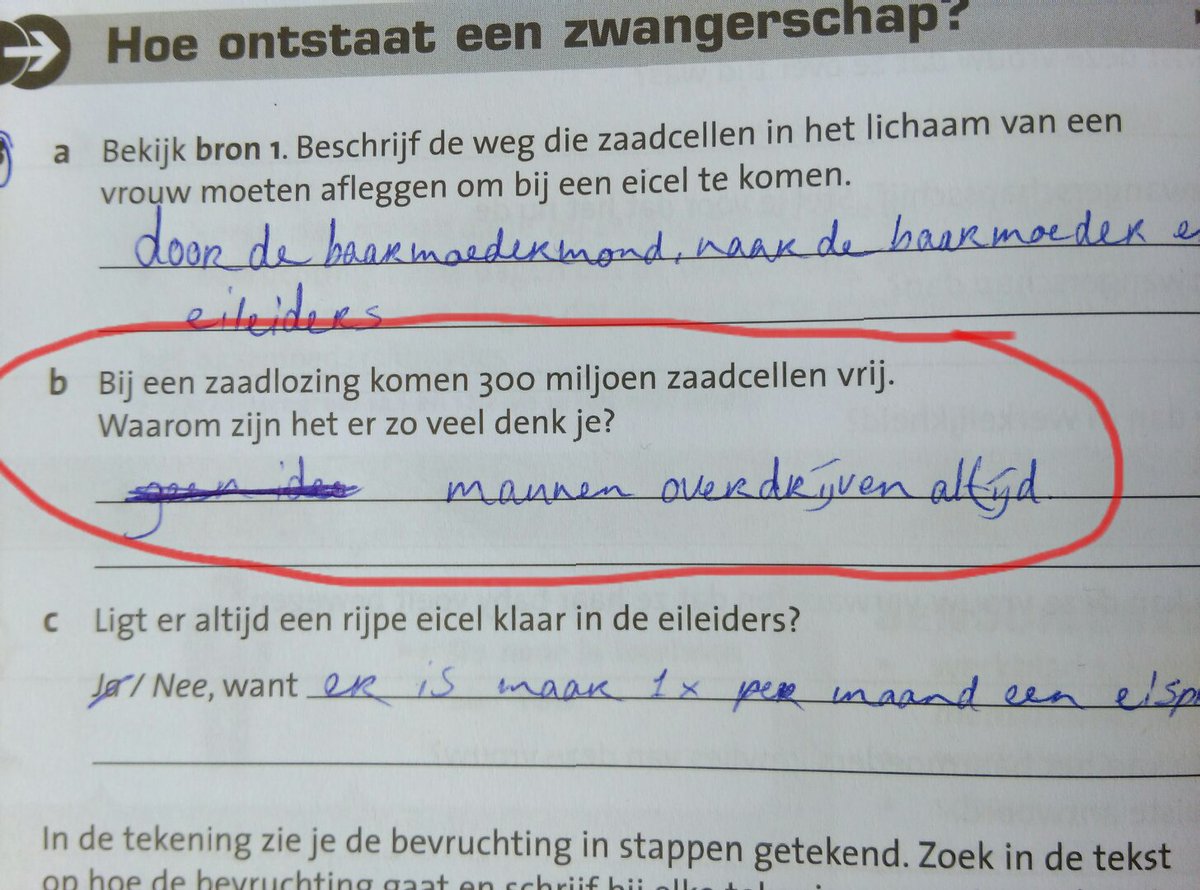 Hoe ontstaat een zwangerschap?
a Bekijk bron 1. Beschrijf de weg die zaadcellen in het lichaam van een
vrouw moeten afleggen om bij een eicel te komen.
door de baarmoedermond, naar de baarmoeder e
eileiders
b Bij een zaadlozing komen 300 miljoen zaadcellen vrij.
Waarom zijn het er zo veel denk je?
geen idee mannen overdrijven altijd
c Ligt er altijd een rijpe eicel klaar in de eileiders?
Ja / Nee, want er is maar 1x per maand een eisp
In de tekening zie je de bevruchting in stappen getekend. Zoek in de tekst
op hoe de bevruchting gaat en schrijf bij elke